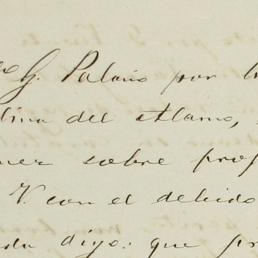 G. Palacio por
tina del Alamo,
ner sobre prop
V. con el debido
digo: que